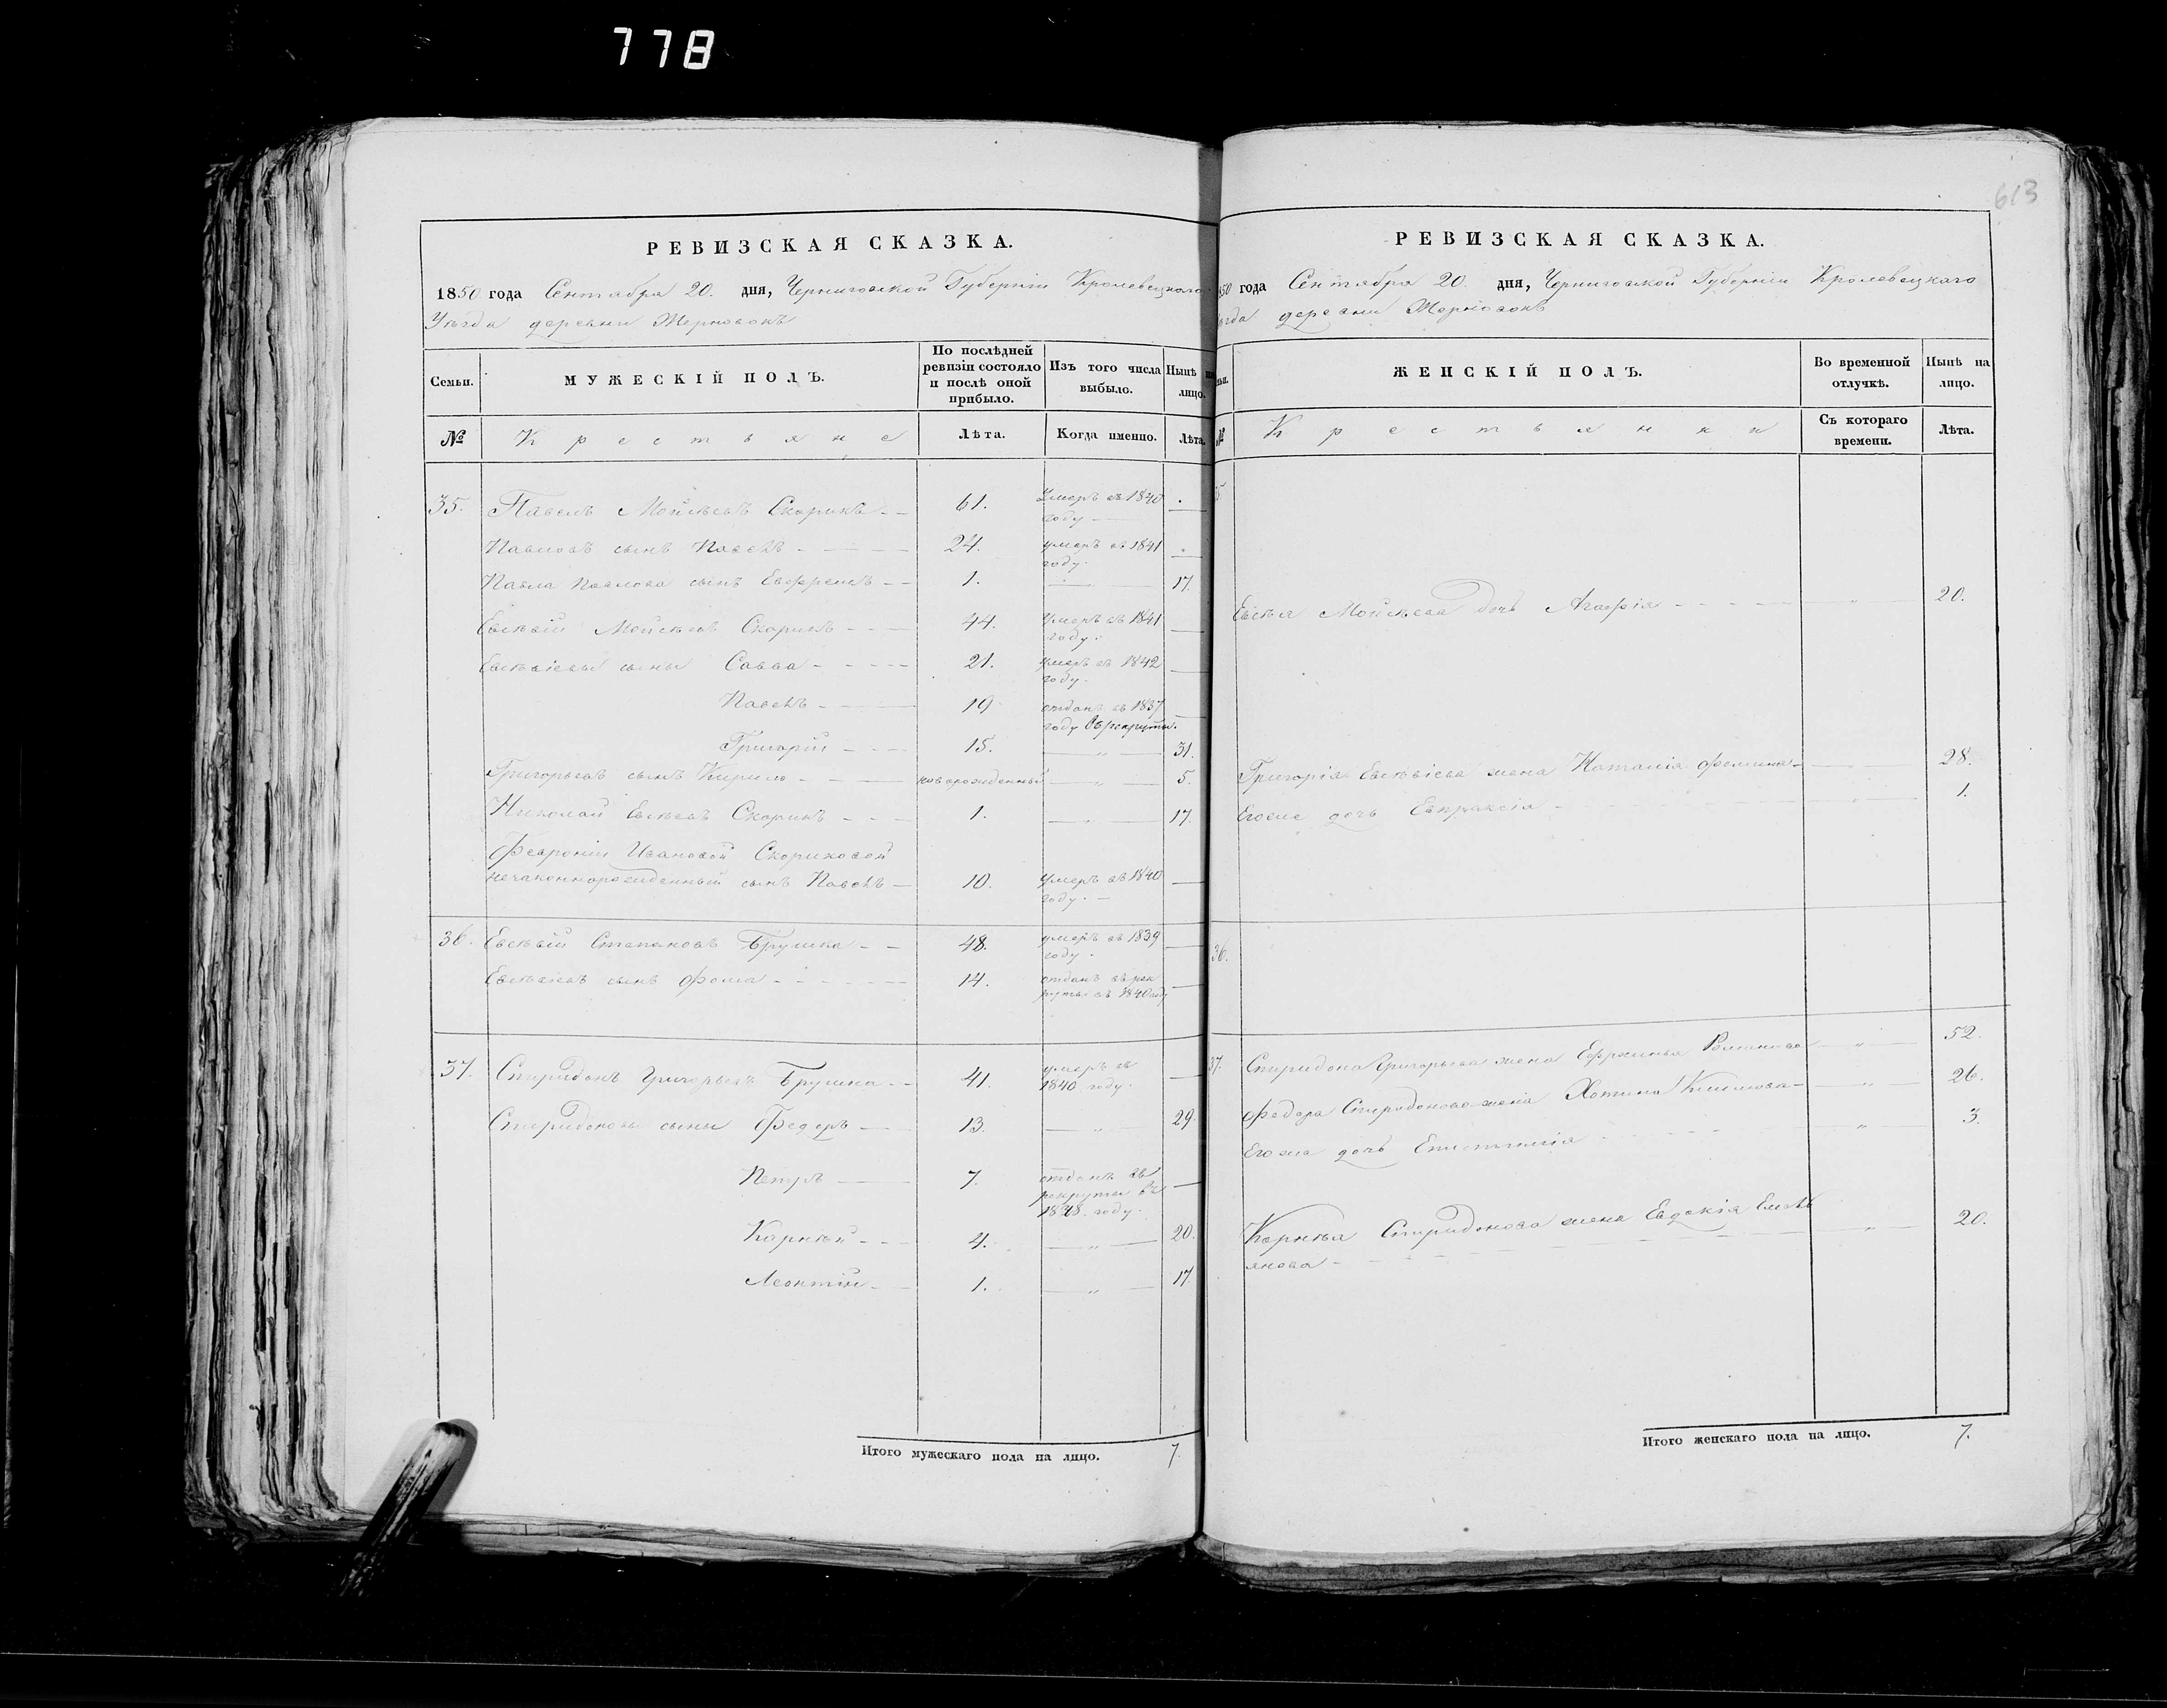 778
613
РЕВИЗСКАЯ СКАЗКА.
1850 года Сентября 20. дня, Черниговской Губерніи Кролевецкаго
Уѣзда деревни Жерновокъ
Семьи.
МУЖЕСКІЙ ПОЛЪ.
По послѣдней ревизіи состояло и послѣ оной прибыло.
Изъ того числа выбыло.
Нынѣ на лицо.
№
Крестьяне
Лѣта.
Когда именно.
Лѣта.
35. Павелъ Мойсѣевъ Скорикъ 61. Умеръ въ 1840 году
Павловъ сынъ Павелъ 24. умеръ въ 1841 году.
Павла Павлова сынъ Евфремъ 1. 17.
Евсѣвій Мойсѣевъ Скорикъ 44. Умеръ въ 1841 году.
Евсѣвіевы сыны Савва 21. умеръ въ 1842 году.
Павелъ 19 отданъ въ 1837 году въ рекруты.
Григорій 15. „ 31.
Григорьевъ сынъ Кирило новорожденный „ 5.
Николай Евсѣевъ Скорикъ 1. „ 17.
Февроніи Ивановой Скориковой
незаконнорожденный сынъ Павелъ 10. Умеръ въ 1840 году.
36. Евсѣвій Степановъ Брушка 48. умеръ въ 1839 году.
Евсѣвіевъ сынъ Фома 14. отданъ въ рекруты въ 1840 году
37. Спиридонъ Григорьевъ Брушка 41. умеръ въ 1840 году.
Спиридоновы сыны Федоръ 13. „ 29.
Петръ 7. отданъ въ рекруты въ 1848. году.
Карнѣй 4. „ 20.
Леонтій 1. „ 17.
Итого мужескаго пола на лицо. 7.
РЕВИЗСКАЯ СКАЗКА.
1850 года Сентября 20. дня, Черниговской Губерніи Кролевецкаго
Уѣзда деревни Жерновокъ
ЖЕНСКІЙ ПОЛЪ.
Во временной отлучкѣ.
Нынѣ на лицо.
№
Крестьянки
Съ котораго времени.
Лѣта.
35.
Евсѣя Мойсѣева дочь Агафія „ 20.
Григорія Евсѣвіева жена Наталія Фомина „ 28.
Егоже дочь Евпраксія „ 1.
36.
37. Спиридона Григорьева жена Ефросинья Романова „ 52.
Федора Спиридонова жена Хотина Климова „ 26.
Егоже дочь Епистимія „ 3.
Корнѣя Спиридонова жена Евдокія Емелъ
янова „ 20.
Итого женскаго пола на лицо. 7.